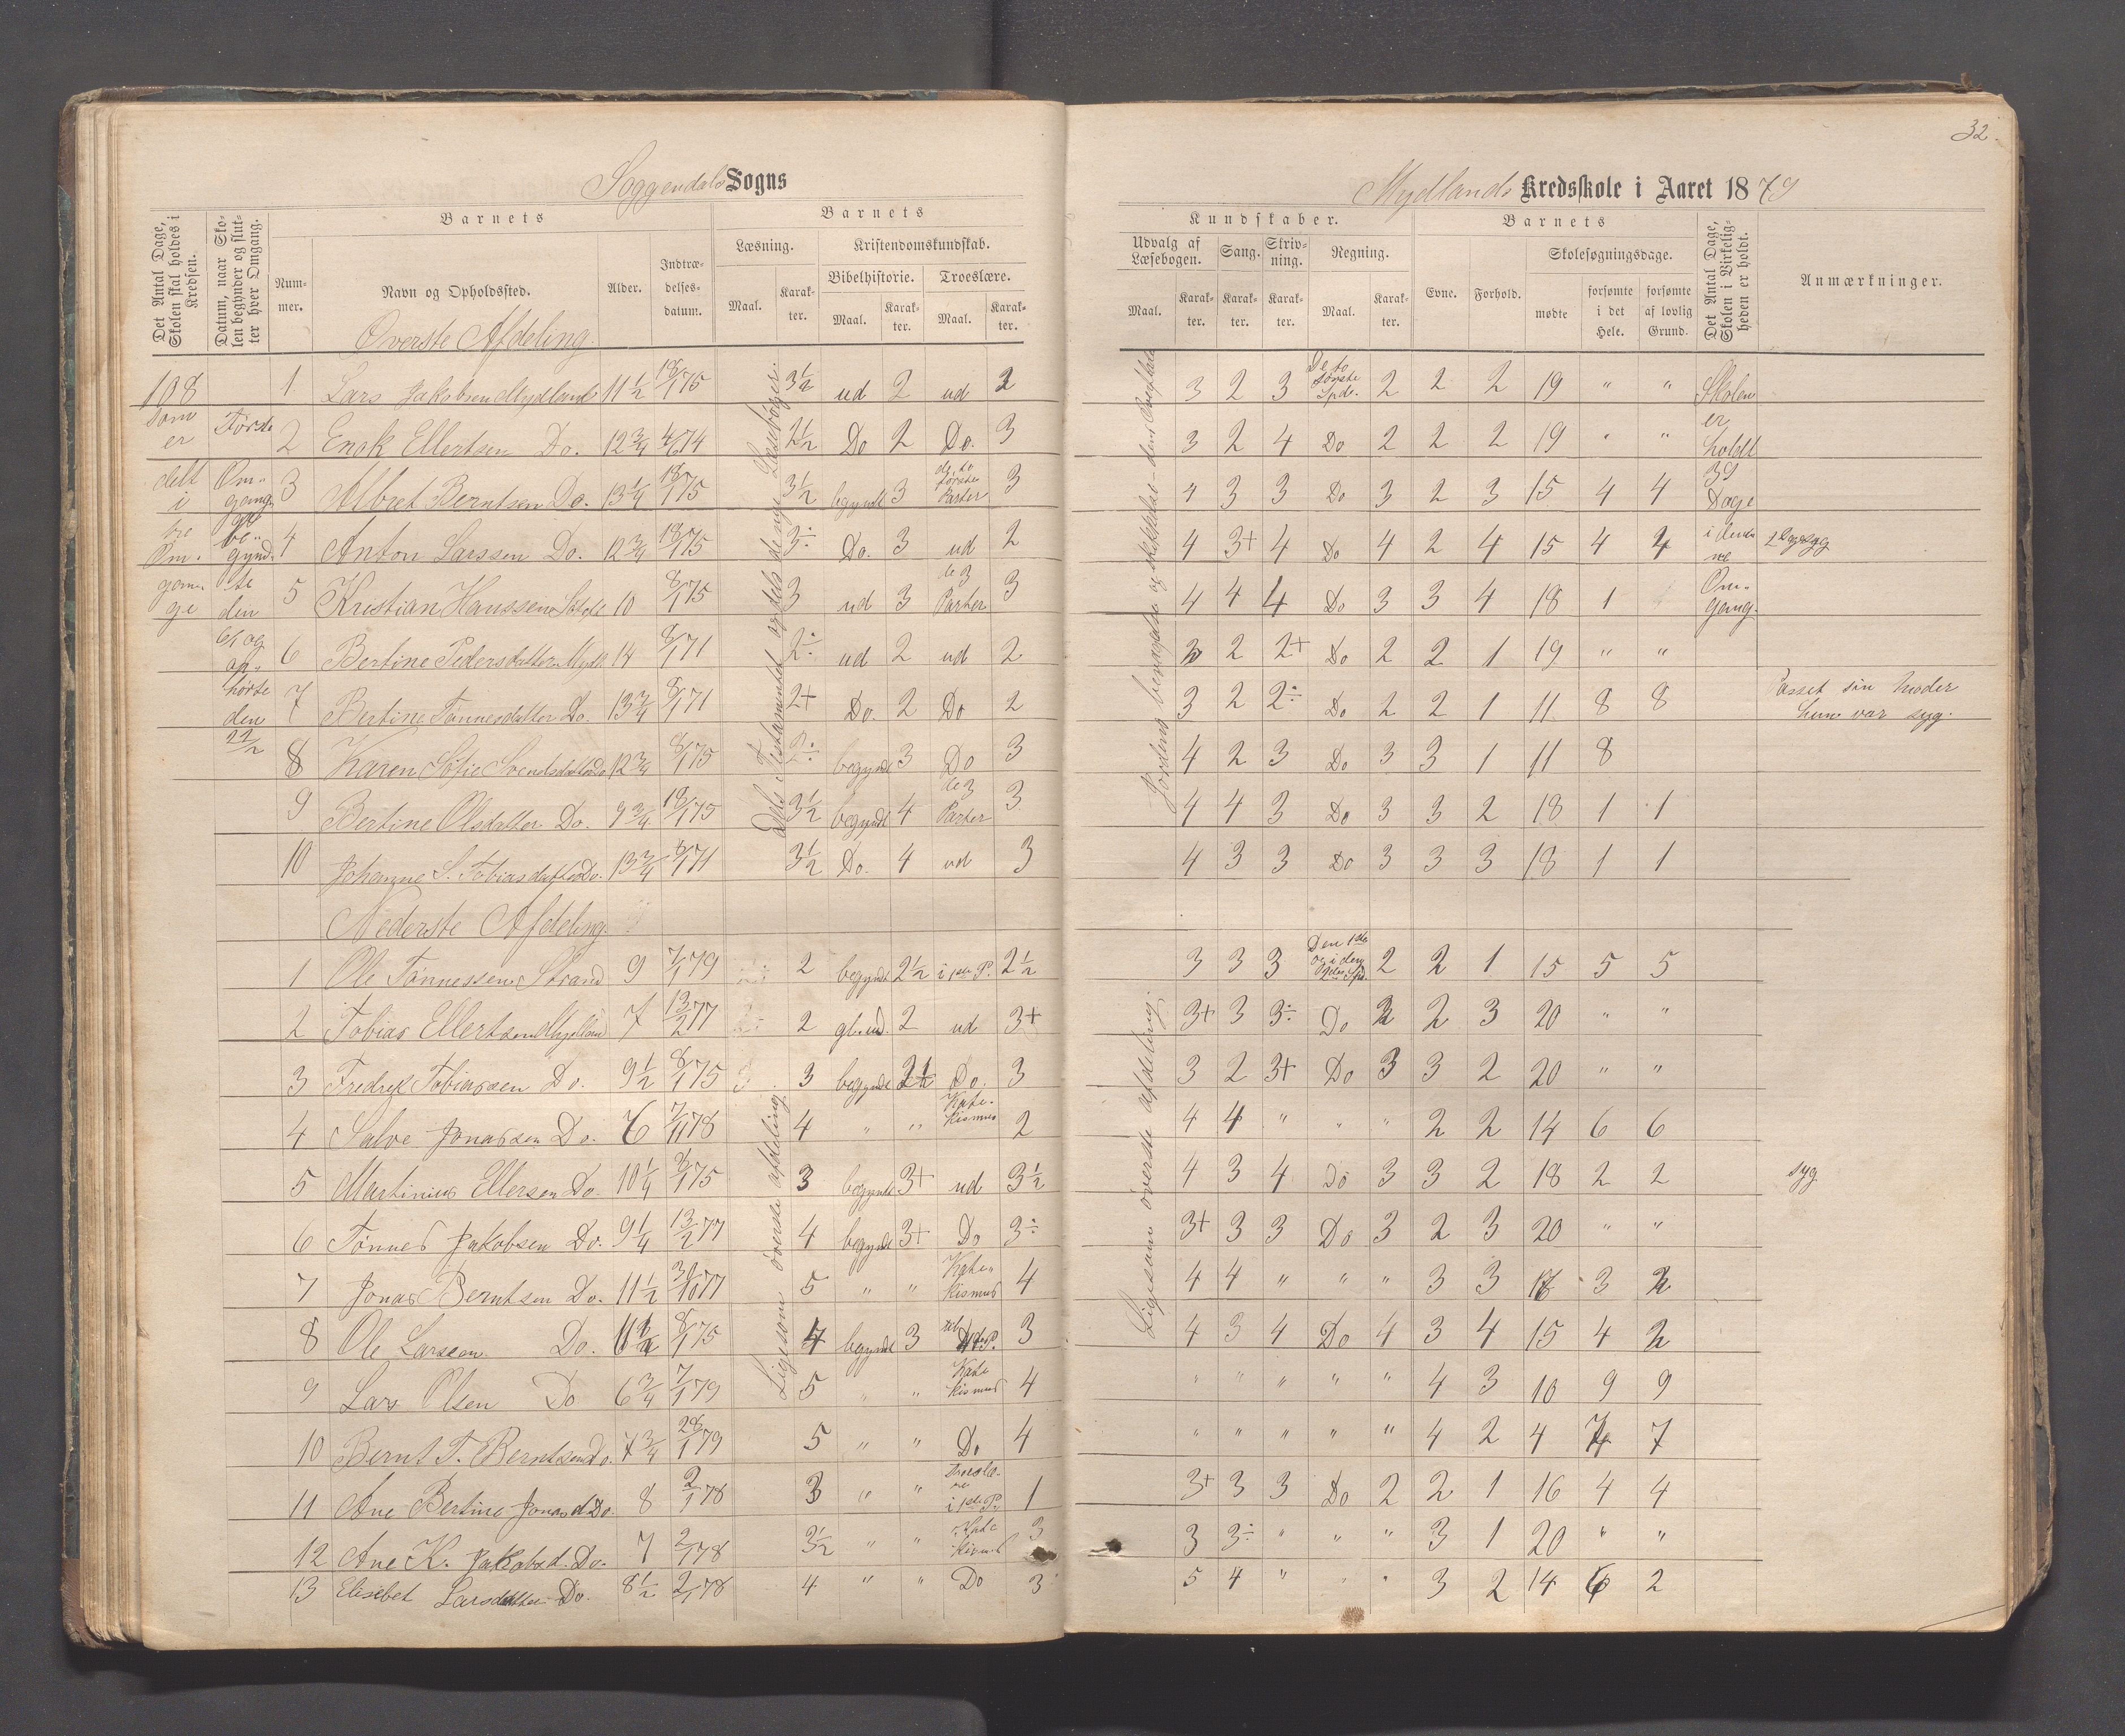 32.
Soggendals Sogns
Mydlands Kredsskole i Aaret 1879
Det Antal Dage, Skolen skal holdes i Kredsen.
Datum, naar Skolen begynder og slutter hver Omgang.
Barnets
Nummer.
Navn og Opholdssted.
Alder.
Indtrædelsesdatum.
Barnets
Læsning.
Maal.
Karakter.
Kristendomskundskab.
Bibelhistorie.
Maal.
Karakter.
Troeslære.
Maal.
Karakter.
Kundskaber.
Udvalg af Læsebogen.
Maal.
Karakter.
Sang.
Karakter.
Skrivning.
Karakter.
Regning.
Maal.
Karakter.
Barnets
Evne.
Forhold.
Skolesøgningsdage.
mødte
forsømte i det Hele.
forsømte af lovlig Grund.
Det Antal Dage, Skolen i Virkeligheden er holdt.
Anmærkninger.
Øverste Afdeling.
108 som er delt i tre Om-gange
Første Om-gang be-gynd-te den og op-hørte den 22/2
Skolen er holdt 39 Dage i denne Om-gang.
1 Lars Jakobsen Mydland 11 1/2 18/1 75 3 1/2 ud 2 ud 2 3 2 3 De to første Spdr. 2 2 2 19 " "
2 Enok Ellertsen Do. 12 3/4 4/6 74 2 1/2 Do 2 Do. 3 3 2 4 Do 2 2 2 19 " "
3 Albret Berntsen Do. 13 1/4 18/1 75 3 1/2 begyndt 3 de to første Parter 3 4 3 3 Do 3 2 3 15 4 4
4 Anton Larssen Do. 12 3/4 18/1 75 3÷ Do. 3 ud 2 4 3+ 4 Do 4 2 4 15 4 4
5 Kristian Hanssen 10 8/1 75 3 ud 3 de 3 Parter 3 4 4 4 Do 3 3 4 18 1
6 Bertine Pedersdatter Mydl 14 8/1 71 2÷ ud 2 ud 2 3 2 2+ Do 2 2 1 19 " "
7 Bertine Tønnesdatter Do. 13 3/4 8/1 71 2+ Do. 2 Do 2 3 2 2÷ Do 2 2 1 11 8 8 Passet sin Moder hun var syg.
8 Karen Sofie Svendsdatter Do 12 3/4 8/1 75 2÷ begyndt 3 Do 3 4 2 3 Do 3 3 1 11 8
9 Bertine Olsdatter Do. 9 3/4 18/1 75 3 1/2 begyndt 4 de 3 Parter 3 4 4 3 Do 3 3 2 18 1 1
10 Johanne S. Tobiasdatter Do. 13 3/4 8/1 71 3 1/2 Do. 4 ud 3 4 3 3 Do 3 3 3 18 1 1
Nederste Afdeling.
1 Ole Tønnessen Strand 9 7/1 79 2 begyndt 2 1/2 i 1ste P. 2 1/2 3 3 3 Den 1ste og i den 2den Spd. 2 2 1 15 5 5
2 Tobias Ellertsen Mydland 7 13/2 77 2 gl. ud. 2 ud 3+ 3+ 3 3÷ Do 2 2 3 20 " "
3 Fredrik Tobiassen Do. 9 1/2 8/1 75 3 begyndt 2 1/2 Do. 3 3 2 3+ Do 3 3 2 20 " "
4 Salve Jonassen Do. 6 7/11 78 4 " " Kate-kismus 2 4 4 " " " 2 2 14 6 6
5 Martinius Ellersen Do. 10 1/4 8/1 75 3 begyndt 3+ ud 3 1/2 4 3 4 Do 3 3 2 18 2 2 syg.
6 Tønnes Jakobsen Do. 9 1/4 13/2 77 4 begyndt 3+ Do 3÷ 3+ 3 3 Do 3 2 3 20 " "
7 Jonas Berntsen Do. 11 1/2 30/10 77 5 " " Kate-kismus 4 4 4 " " " 3 3 16 3 2
8 Ole Larssen Do. 8/1 75 4 begyndt 3 3 4 3 4 Do 4 3 4 15 4 2
9 Lars Olsen Do 6 3/4 7/1 79 5 " " Kate kismus 4 " " " " " 4 3 10 9 9
10 Bernt T. Berntsen Do. 7 3/4 28/1 79 5 " " Do 4 " " " " " 4 2 4 7 7
11 Ane Bertine Jonasd Do. 8 2/1 78 3 " " Troeslæ-re i 1ste P. 1 3+ 3 3 Do 2 2 1 16 4 4
12 Ane K. Jakobsd. Do. 7 2/1 78 3 1/2 " " Kate kismus 3 3 3÷ " " " 3 1 20 " "
13 Elisebet Larsdatter Do. 8 1/2 2/1 78 4 " " Do 3 5 4 " " " 3 2 14 6 2
Dels Testamentet og dels denge Læsebøger.
Ligesom øverste afdeling.
Ligesom øverste afdeling.